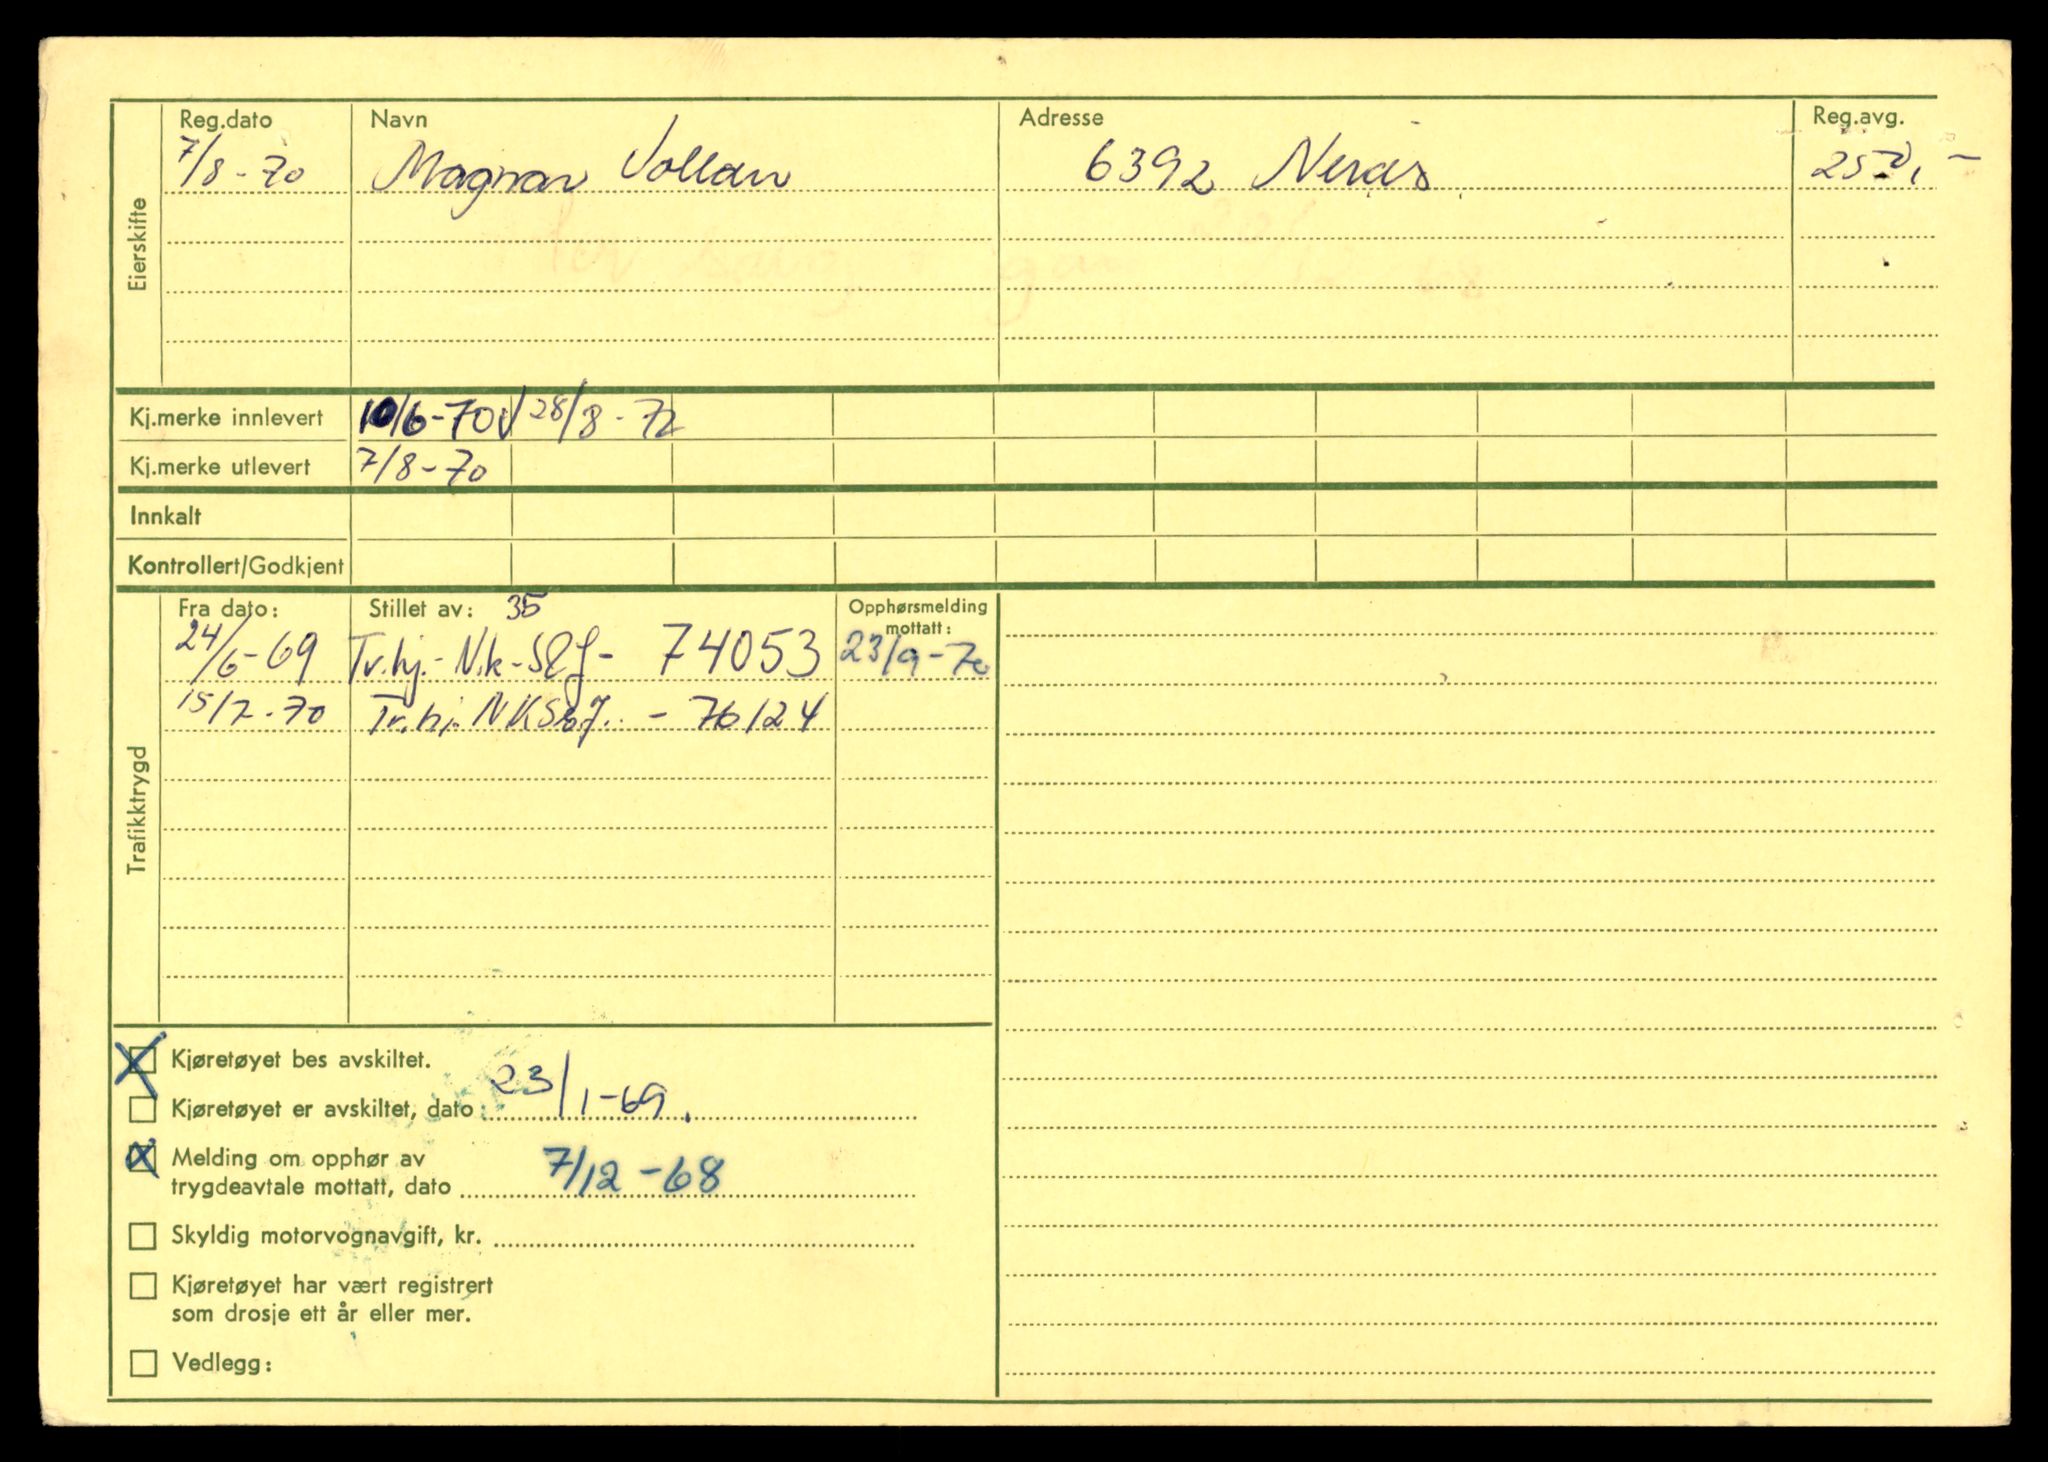 Eierskifte
Reg.dato Navn Adresse Reg.avg.
7/8-70 Magnar Vollan 6392 Nerås 250,-
Kj.merke innlevert 10/6-70 28/8-72
Kj.merke utlevert 7/8-70
Innkalt
Kontrollert/Godkjent
Trafikktrygd
Fra dato: Stillet av: 35 Opphørsmelding
mottatt:
24/6-69 Tv.hj.- N.k- - 74053 23/9-70
15/7-70 Tr.hj. - 76124
Kjøretøyet bes avskiltet.
Kjøretøyet er avskiltet, dato: 23/1-69.
Melding om opphør av
trygdeavtale mottatt, dato 7/12-68
Skyldig motorvognavgift, kr.
Kjøretøyet har vært registrert
som drosje ett år eller mer.
Vedlegg: